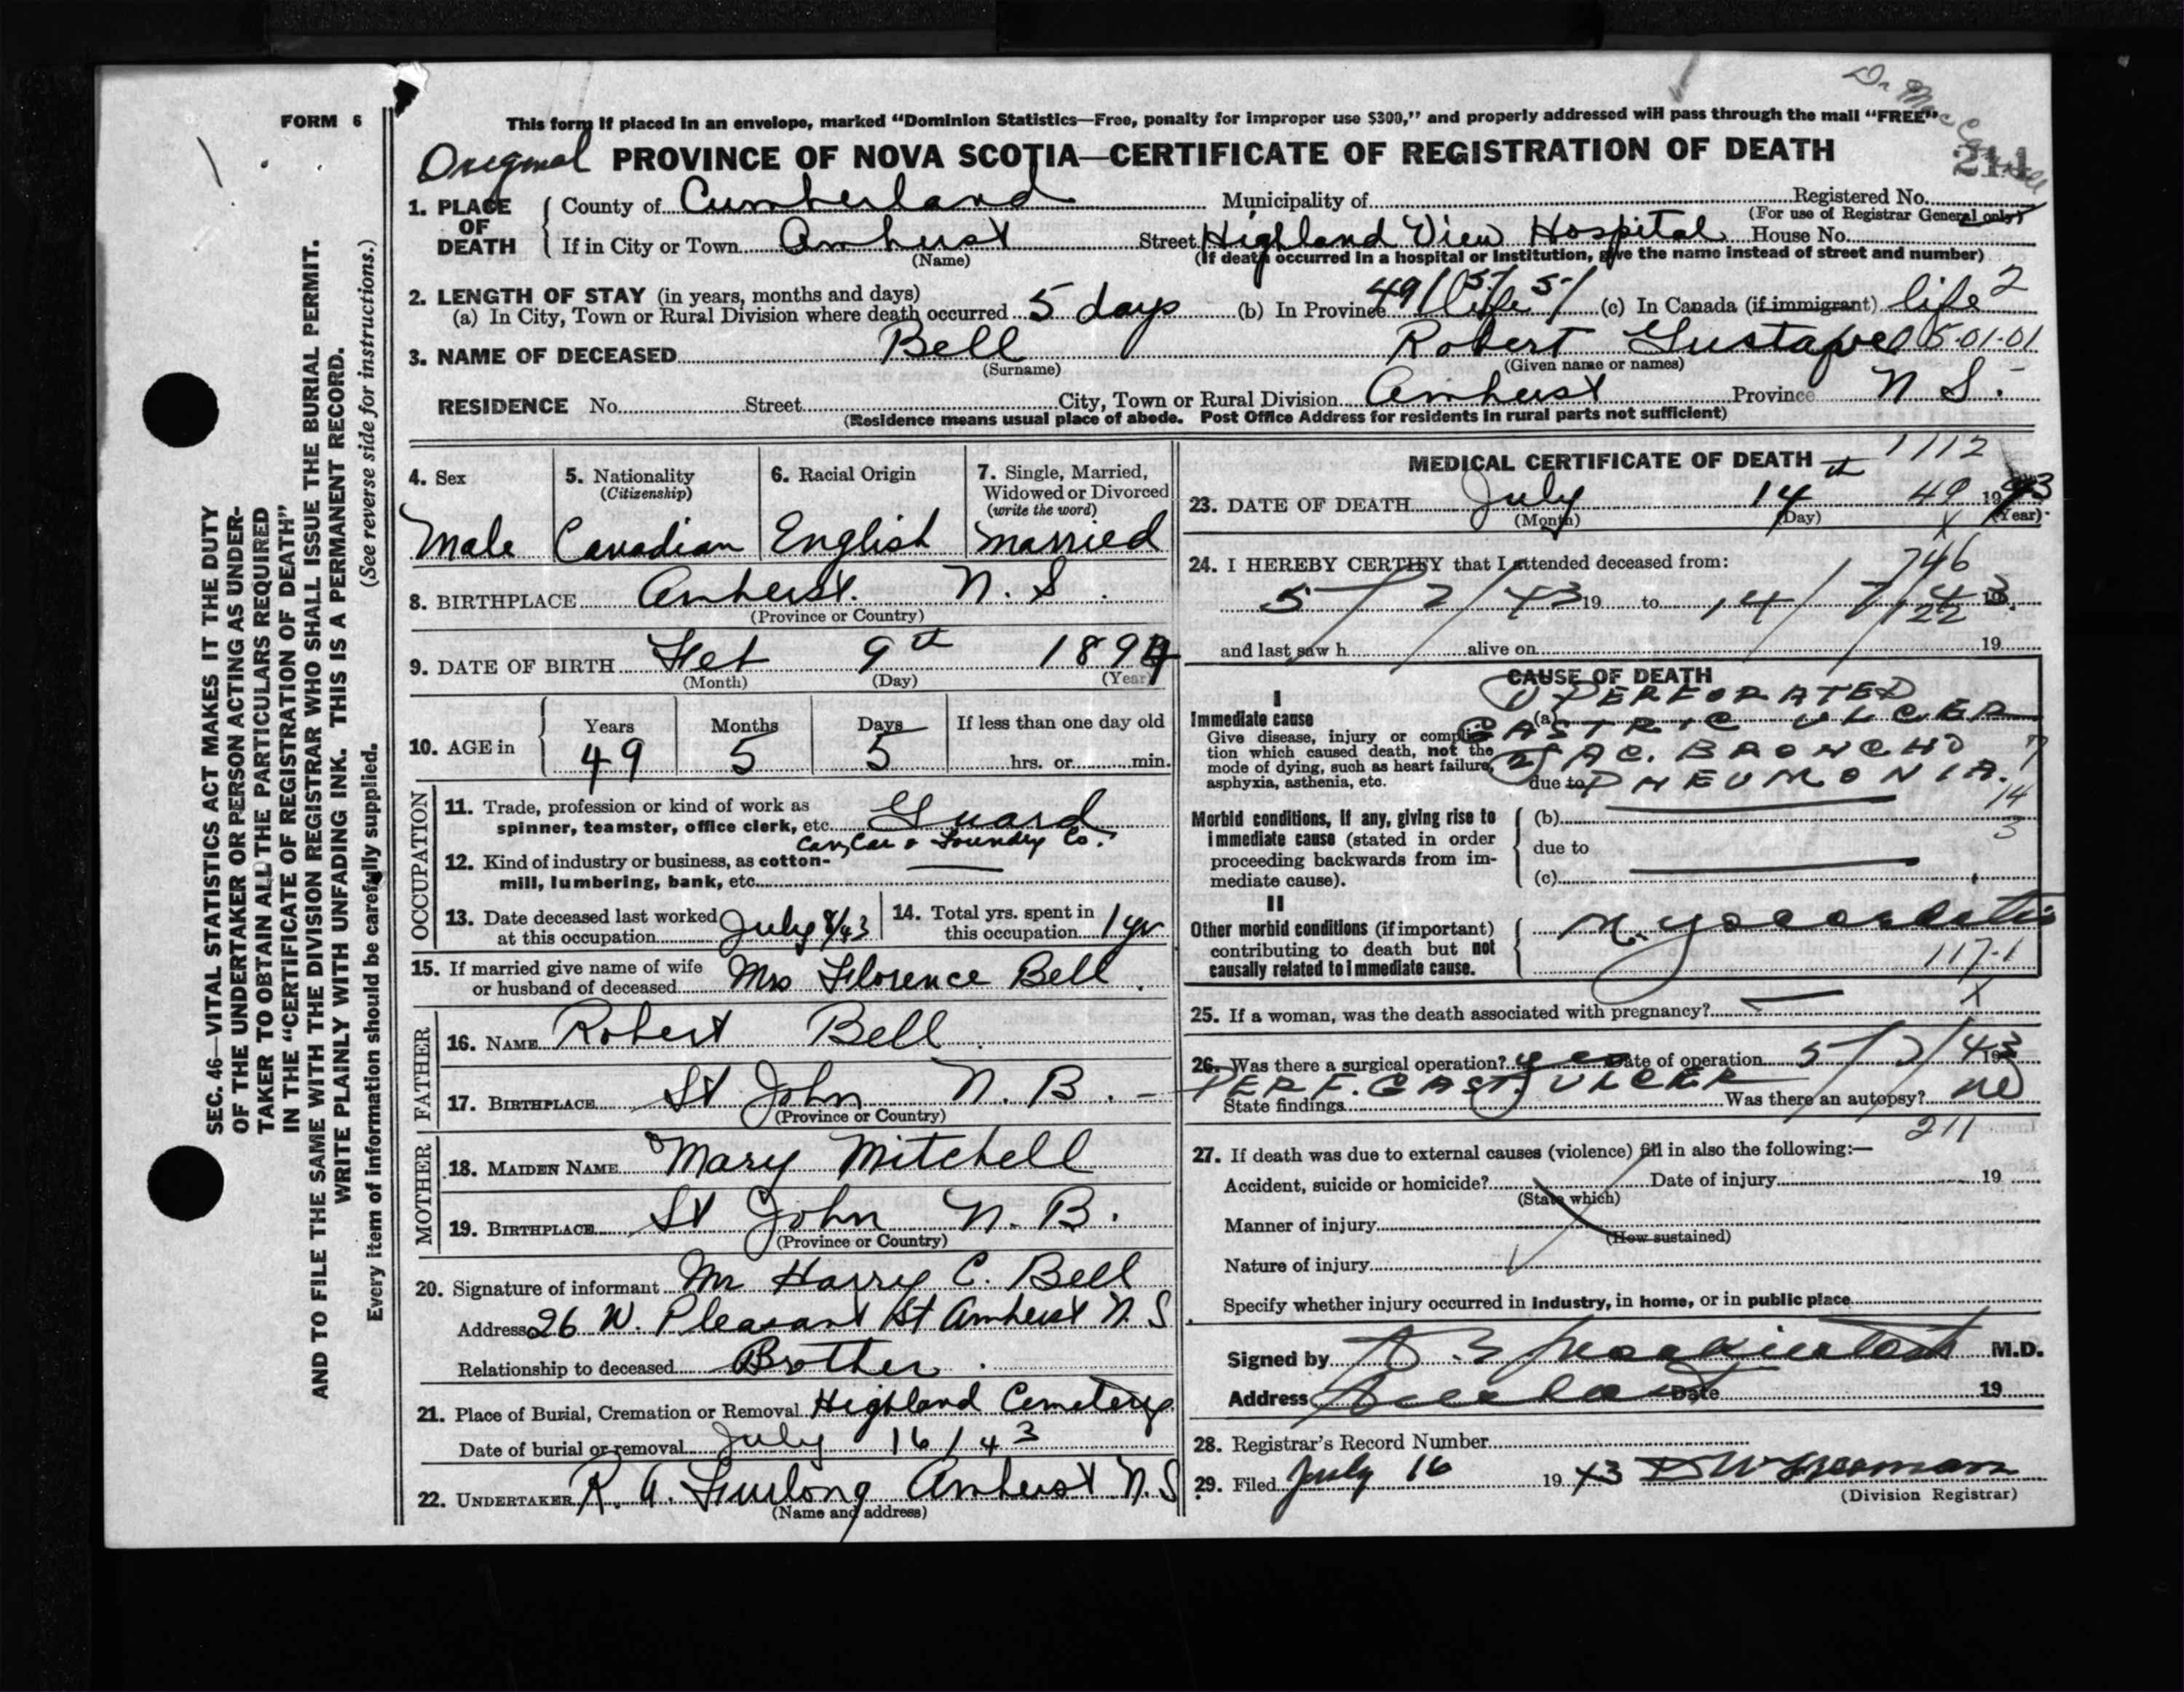 FORM 6
This form if placed in an envelope, marked "Dominion Statistics—Free, penalty for improper use $300," and properly addressed will pass through the mail "FREE"
Original PROVINCE OF NOVA SCOTIA—CERTIFICATE OF REGISTRATION OF DEATH
211
1. PLACE OF DEATH
County of Cumberland Municipality of Registered No.
(For use of Registrar General only)
If in City or Town Amherst Street Highland View Hospital House No.
(Name) (If death occurred in a hospital or institution, give the name instead of street and number)
2. LENGTH OF STAY (in years, months and days)
(a) In City, Town or Rural Division where death occurred 5 days (b) In Province life (c) In Canada (if immigrant) life 2
3. NAME OF DECEASED Bell Robert Gustave 05-01-01
(Surname) (Given name or names)
RESIDENCE No. Street City, Town or Rural Division Amherst Province N S.
(Residence means usual place of abode. Post Office Address for residents in rural parts not sufficient)
4. Sex
Male
5. Nationality
(Citizenship)
Canadian
6. Racial Origin
English
7. Single, Married,
Widowed or Divorced
(write the word)
married
8. BIRTHPLACE Amherst. N. S.
(Province or Country)
9. DATE OF BIRTH Feb 9th 1894
(Month) (Day) (Year)
10. AGE in
Years Months Days If less than one day old
49 5 5 hrs. or min.
OCCUPATION
11. Trade, profession or kind of work as
spinner, teamster, office clerk, etc. Guard
Can, Car & Foundry Co.
12. Kind of industry or business, as cotton-
mill, lumbering, bank, etc.
13. Date deceased last worked
at this occupation July 8/43
14. Total yrs. spent in
this occupation 1 yr
15. If married give name of wife
or husband of deceased Mrs Florence Bell.
FATHER
16. NAME Robert Bell.
17. BIRTHPLACE St John N. B.
(Province or Country)
MOTHER
18. MAIDEN NAME Mary Mitchell
19. BIRTHPLACE St John N. B.
(Province or Country)
20. Signature of informant Mr Harry C. Bell
Address 26 W. Pleasant St Amherst N. S
Relationship to deceased Brother.
21. Place of Burial, Cremation or Removal Highland Cemetery
Date of burial or removal July 16/43
22. UNDERTAKER R. A. Furlong Amherst N. S
(Name and address)
MEDICAL CERTIFICATE OF DEATH
1112
23. DATE OF DEATH July 14th 49 1943
(Month) (Day) (Year)
X
24. I HEREBY CERTIFY that I attended deceased from: 746
5/7/43 19 to 14/7/43 19
122
and last saw h alive on 19
CAUSE OF DEATH
I
Immediate cause
Give disease, injury or complica-
tion which caused death, not the
mode of dying, such as heart failure,
asphyxia, asthenia, etc.
(a) 1) PERFORATED
GASTRIC ULCER
2) AC. BRONCHO
due to PNEUMONIA.
14
3
Morbid conditions, if any, giving rise to
immediate cause (stated in order
proceeding backwards from im-
mediate cause).
(b)
due to
(c)
II
Other morbid conditions (if important)
contributing to death but not
causally related to immediate cause.
Myocarditis
117-1
X
25. If a woman, was the death associated with pregnancy?
26. Was there a surgical operation? yes Date of operation 5/7/43 19
PERF. GAST. ULCER
State findings Was there an autopsy? no
211
27. If death was due to external causes (violence) fill in also the following:—
Accident, suicide or homicide? Date of injury 19
(State which)
Manner of injury
(How sustained)
Nature of injury
Specify whether injury occurred in industry, in home, or in public place
Signed by M.D.
Address Date 19
28. Registrar's Record Number
29. Filed July 16 1943
(Division Registrar)
SEC. 46—VITAL STATISTICS ACT MAKES IT THE DUTY
OF THE UNDERTAKER OR PERSON ACTING AS UNDER-
TAKER TO OBTAIN ALL THE PARTICULARS REQUIRED
IN THE "CERTIFICATE OF REGISTRATION OF DEATH"
AND TO FILE THE SAME WITH THE DIVISION REGISTRAR WHO SHALL ISSUE THE BURIAL PERMIT.
WRITE PLAINLY WITH UNFADING INK. THIS IS A PERMANENT RECORD.
(See reverse side for instructions.)
Every item of information should be carefully supplied.